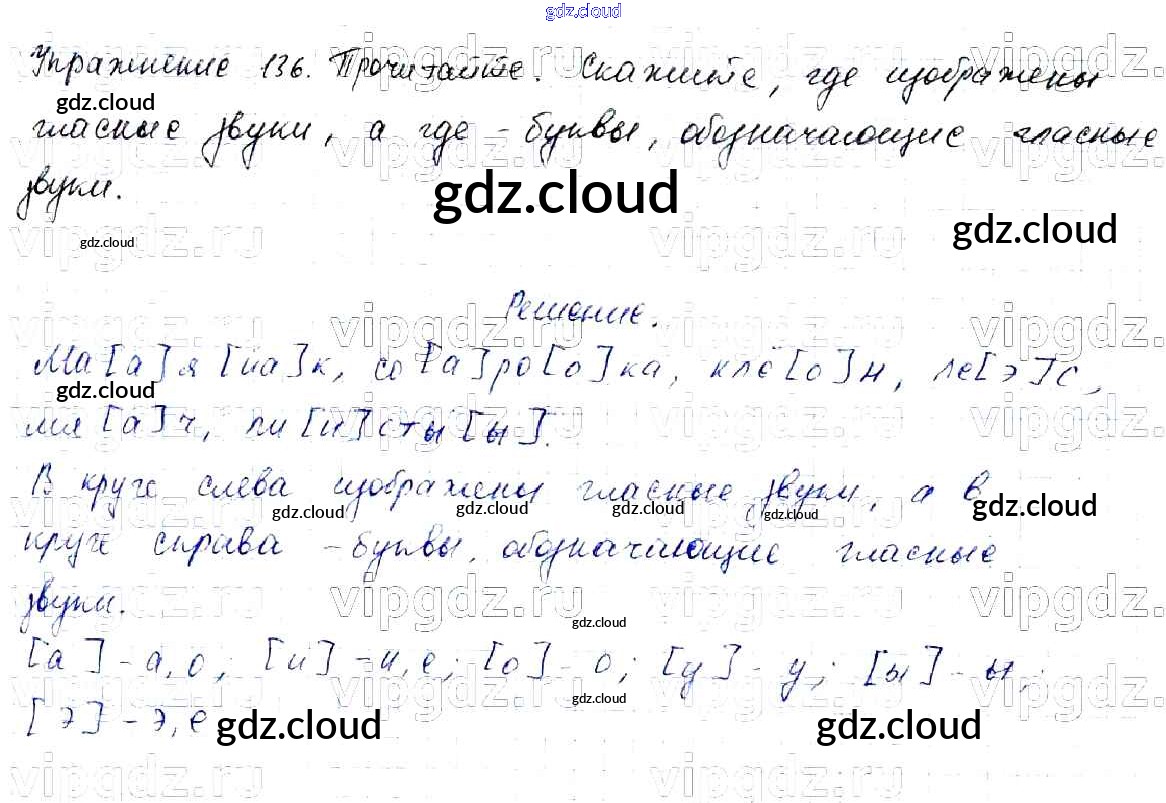 gdz.cloud
Упражнение 136. Прочитайте. Скажите, где изображены
gdz.cloud
гласные звуки, а где - буквы, обозначающие гласные
звуки.
gdz.cloud
gdz.cloud
gdz.cloud
Решение.
Ма[а]я[йа]к, со[а]ро[о]ка, клё[о]н, ле[э]с,
gdz.cloud
мя[а]ч, ли[и]сты[ы].
В круге слева изображены гласные звуки, а в
gdz.cloud gdz.cloud gdz.cloud gdz.cloud gdz.cloud
круге справа - буквы, обозначающие гласные
звуки.
vipgdz.ru vipgdz.ru vipgdz.ru
gdz.cloud
[а] - а, о; [и] - и, е; [о] - о; [у] - у; [ы] - ы;
gdz.cloud
[э] - э, е
gdz.cloud gdz.cloud